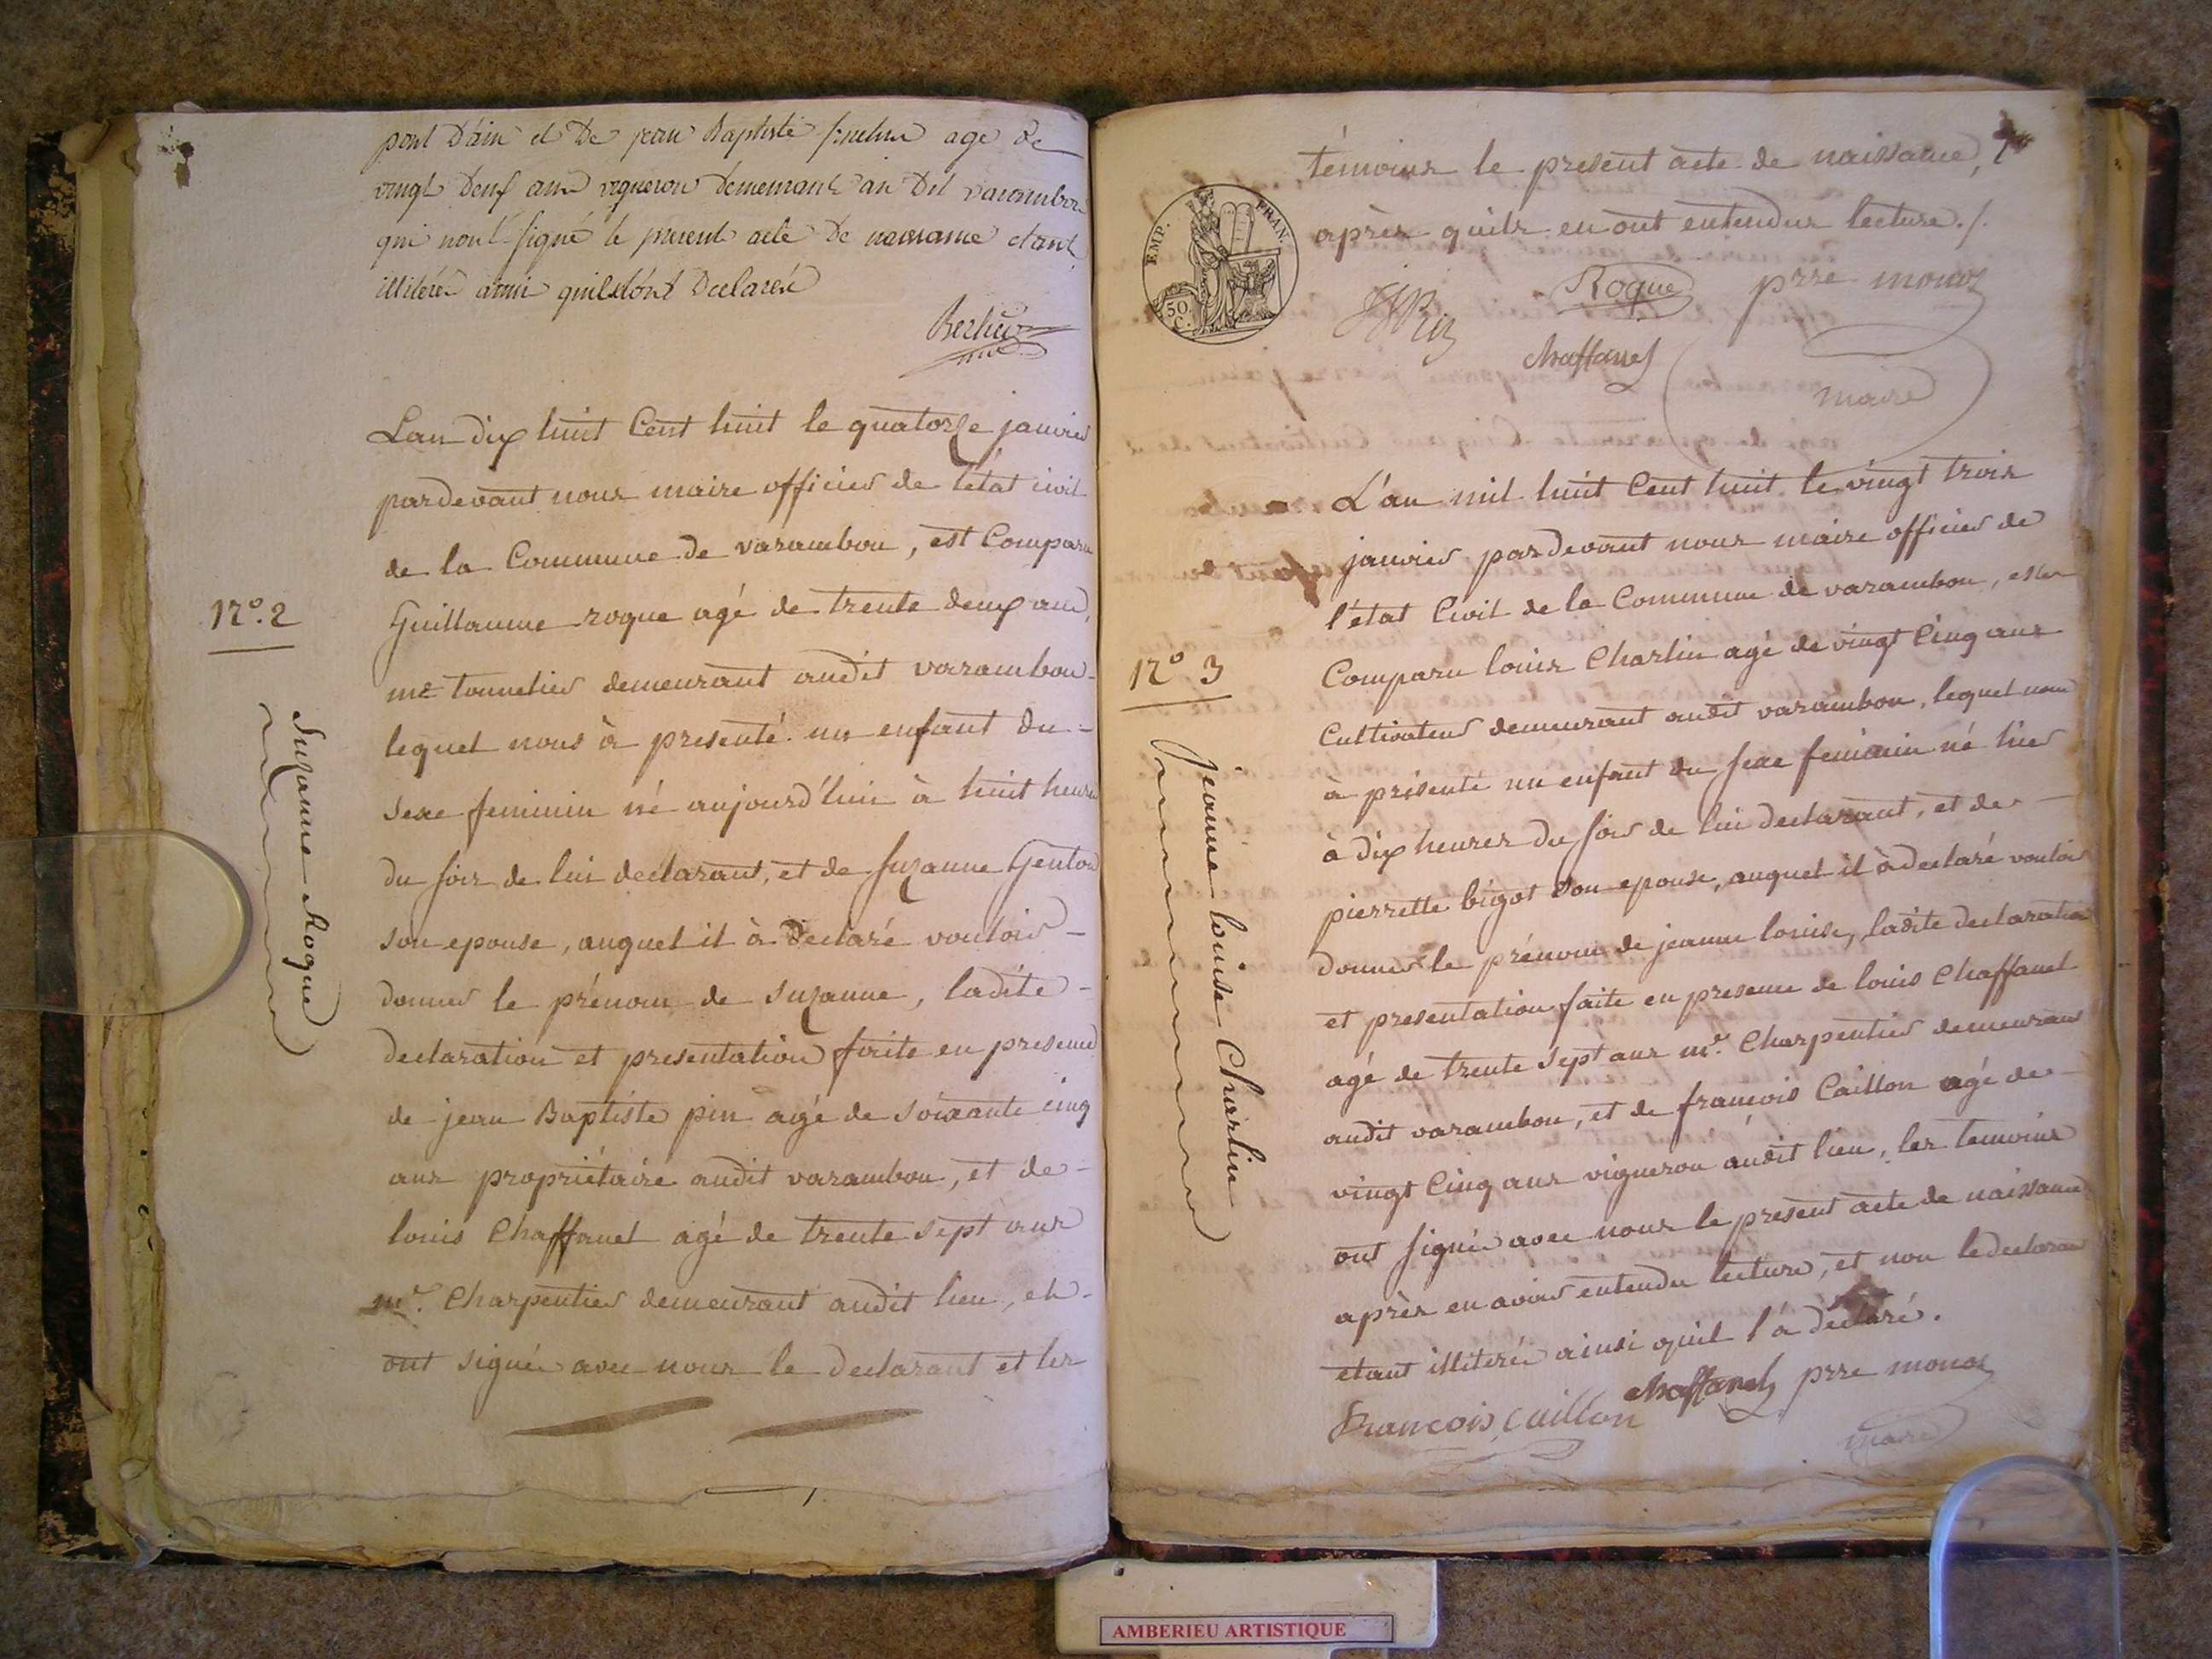 pont Dain et De jean Baptiste age De
vingt Deux ans vigneron Demeurant au Dit varambon
qui nont signé le present acte De naissance etant
illiterés ainsi quils lont Declarés
Lan dix huit Cent huit le quatorze janvier
pardevant nous maire officier de l'état civil
de la Commune de varambon, est Comparu
N.º 2
Guillaume roque agé de trente deux ans,
me tonnelier demeurant audit varambon
lequel nous à presenté un enfant du
sexe feminin né aujourd'hui à huit heures
du soir de lui declarant, et de suzanne Genton
son epouse, auquel il à declaré vouloir
donner le prénom de suzanne, ladite
declaration et presentation faite en presence
de jean Baptiste pin agé de soixante cinq
ans propriétaire audit varambon, et de
louis Chaffanel agé de trente sept ans
mr. Charpentier demeurant audit lieu, et
ont signés avec nous le declarant et les
Suzanne Roque
témoins le present acte de naissance,
après quils en ont entendus lecture./.
EMP. FRAN.
50. C.
Roque prre monoz
chaffanel
maire
L'an mil huit Cent huit le vingt trois
janvier pardevant nous maire officier de
l'état Civil de la Commune de varambon, est
Nº 3
Comparu louis Charlin agé de vingt Cinq ans
Cultivateur demeurant audit varambon, lequel nous
à présenté un enfant du sexe feminin né hier
à dix heures du soir de lui declarant, et de
pierrette bigot son epouse, auquel il à declaré vouloir
donner le prénom de jeanne louise, ladite declaration
et presentation faite en presence de louis Chaffanel
agé de trente sept ans mr. Charpentier demeurant
audit varambon, et de francois Caillon agé de
vingt Cinq ans vigneron audit lieu, les temoins
ont signés avec nous le present acte de naissance
après en avoir entendu lecture, et non le declarant
etant illiteré ainsi quil l'à declaré.
francois caillon chaffanel prre monoz
maire
jeanne louise Charlin
AMBERIEU ARTISTIQUE